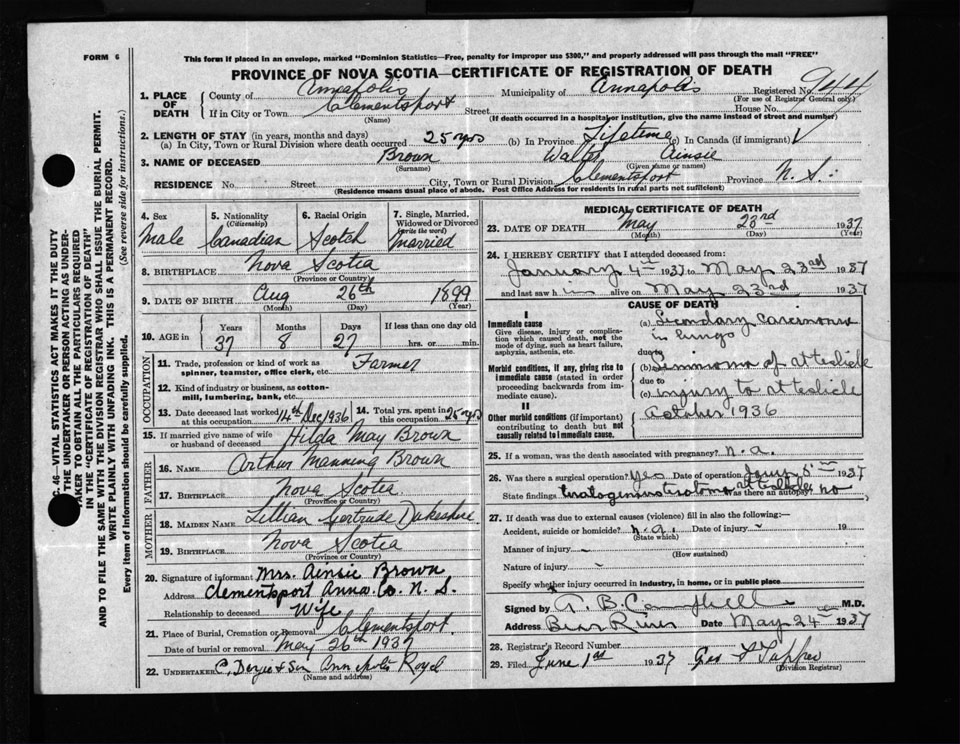 FORM 6
This form if placed in an envelope, marked "Dominion Statistics—Free, penalty for improper use $300," and properly addressed will pass through the mail "FREE"
PROVINCE OF NOVA SCOTIA—CERTIFICATE OF REGISTRATION OF DEATH
1. PLACE OF DEATH
County of Annapolis Municipality of Annapolis Registered No. 944
(For use of Registrar General only.)
If in City or Town Clementsport Street House No.
(Name) (If death occurred in a hospital or institution, give the name instead of street and number)
2. LENGTH OF STAY (in years, months and days)
(a) In City, Town or Rural Division where death occurred 25 yrs (b) In Province Lifetime (c) In Canada (if immigrant)
3. NAME OF DECEASED Brown Walter Ainsie
(Surname) (Given name or names)
RESIDENCE No. Street City, Town or Rural Division Clementsport Province N. S.
(Residence means usual place of abode. Post Office Address for residents in rural parts not sufficient)
4. Sex Male
5. Nationality (Citizenship) Canadian
6. Racial Origin Scotch
7. Single, Married, Widowed or Divorced (Write the word) Married
8. BIRTHPLACE Nova Scotia
(Province or Country)
9. DATE OF BIRTH Aug 26th 1899
(Month) (Day) (Year)
10. AGE in Years 37 Months 8 Days 27 If less than one day old hrs. or min.
OCCUPATION
11. Trade, profession or kind of work as spinner, teamster, office clerk, etc. Farmer
12. Kind of industry or business, as cotton-mill, lumbering, bank, etc.
13. Date deceased last worked at this occupation 14th Dec 1936 14. Total yrs. spent in this occupation 25 yrs
15. If married give name of wife or husband of deceased Hilda May Brown
FATHER
16. NAME Arthur Manning Brown
17. BIRTHPLACE Nova Scotia
(Province or Country)
MOTHER
18. MAIDEN NAME Lillian Gertrude
19. BIRTHPLACE Nova Scotia
(Province or Country)
20. Signature of informant Mrs. Ainsie Brown
Address Clementsport Anna. Co. N. S.
Relationship to deceased Wife
21. Place of Burial, Cremation or Removal Clementsport
Date of burial or removal May 26th 1937
22. UNDERTAKER & Son Royal
(Name and address)
MEDICAL CERTIFICATE OF DEATH
23. DATE OF DEATH May 23rd 1937
(Month) (Day) (Year)
24. I HEREBY CERTIFY that I attended deceased from:
January 4th 1937 to May 23rd 1937
and last saw him alive on May 23rd 1937
CAUSE OF DEATH
I
Immediate cause
Give disease, injury or complication which caused death, not the mode of dying, such as heart failure, asphyxia, asthenia, etc.
Morbid conditions, if any, giving rise to immediate cause (stated in order proceeding backwards from immediate cause).
II
Other morbid conditions (if important) contributing to death but not causally related to immediate cause.
(a) Secondary
in lungs
due to
(b) of
due to
(c) injury to
October 1936
25. If a woman, was the death associated with pregnancy? n.a.
26. Was there a surgical operation? Yes Date of operation 1937
State findings Was there an autopsy? no
27. If death was due to external causes (violence) fill in also the following:—
Accident, suicide or homicide? n.a. Date of injury 19
(State which)
Manner of injury
(How sustained)
Nature of injury
Specify whether injury occurred in industry, in home, or in public place
Signed by B. Campbell M.D.
Address Bear River Date May 24th 1937
28. Registrar's Record Number
29. Filed June 1st 1937 Geo Tupper
(Division Registrar)
C. 46—VITAL STATISTICS ACT MAKES IT THE DUTY
OF THE UNDERTAKER OR PERSON ACTING AS UNDERTAKER
TO OBTAIN ALL THE PARTICULARS REQUIRED
IN THE "CERTIFICATE OF REGISTRATION OF DEATH"
AND TO FILE THE SAME WITH THE DIVISION REGISTRAR WHO SHALL ISSUE THE BURIAL PERMIT.
WRITE PLAINLY WITH UNFADING INK. THIS IS A PERMANENT RECORD.
Every item of Information should be carefully supplied. (See reverse side for instructions.)